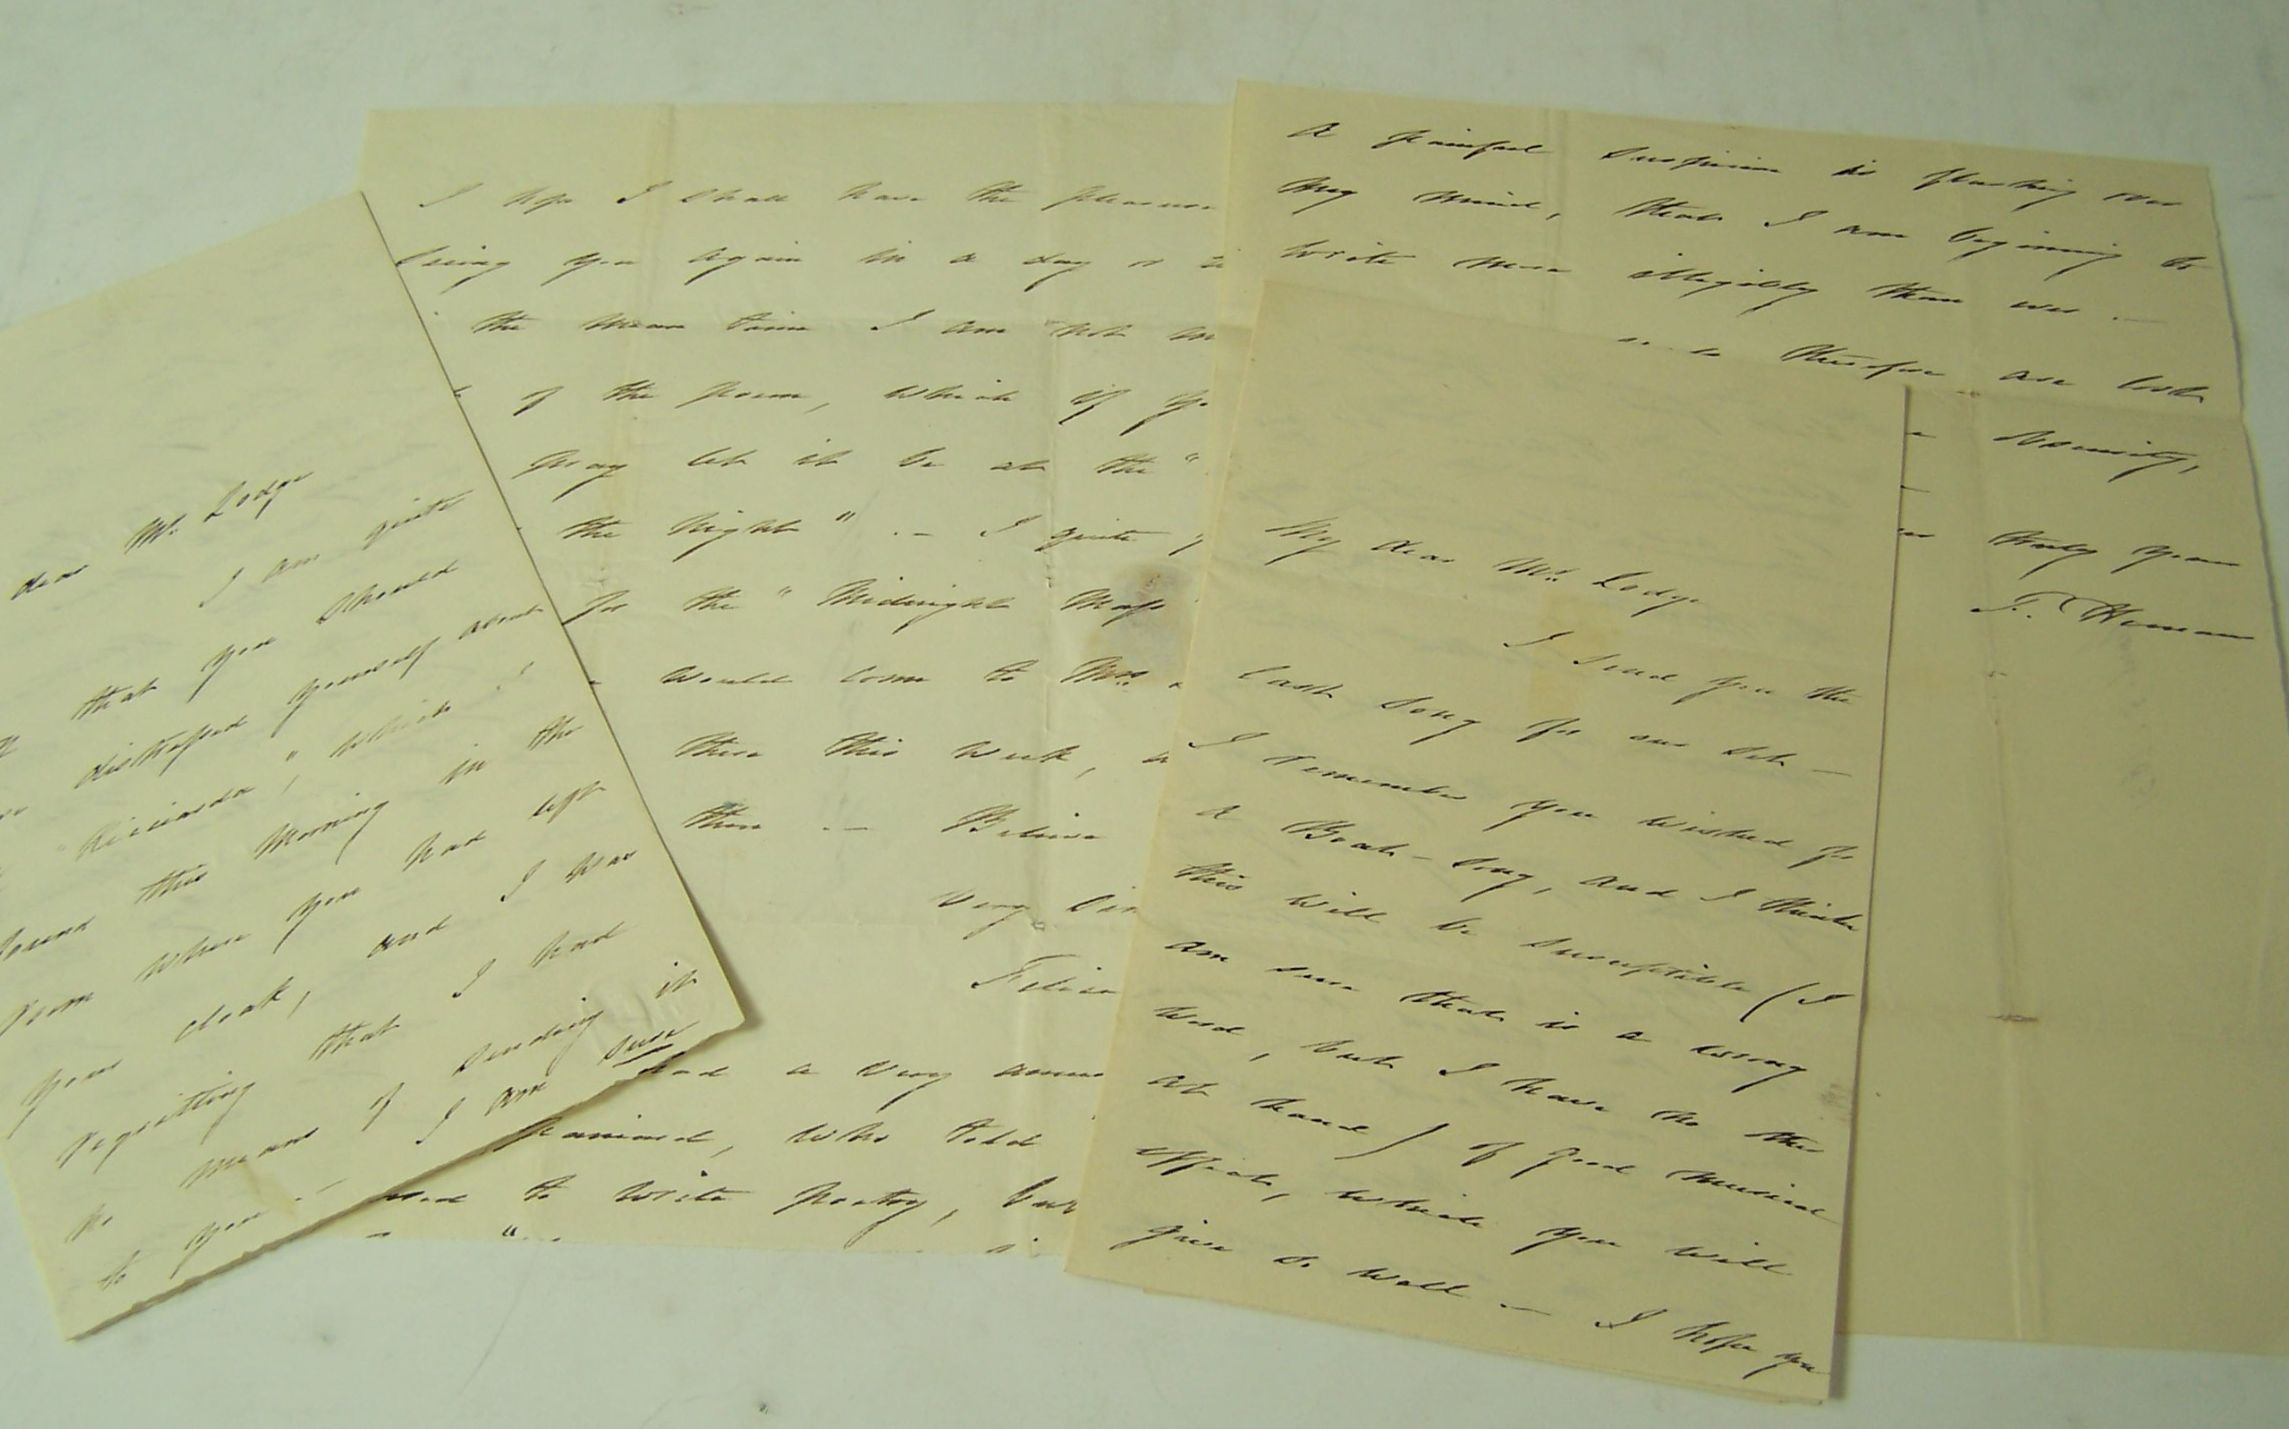 dear Mr. Lodge
I am quite
that you should
distressed yourself about
Ricciarda", which
found this morning in the
room where you had left
your cloak, and I was
regretting that I had
no means of sending it
to you. — I am sure
I hope I shall have the pleasure
seeing you again in a day or
the mean time I am not
of the poem, which if
pray let it be at the "
the Night" . — I quite
for the "Midnight Mass
would come to Mrs.
there this week,
there . — Believe
very
Felicia
had a very
, who told
used to write poetry, but
A painful suspicion is flashing over
my mind, that I am beginning to
write more illegibly than ever . —
therefore
truly yours
F. Hemans
My dear Mr. Lodge
I send you the
last song for our set —
I remember you wished for
a Boat-song, and I think
this will be susceptible (I
am sure that is a wrong
word, but I have no other
at hand) of good musical
effect, which you will
give so well — I hope you